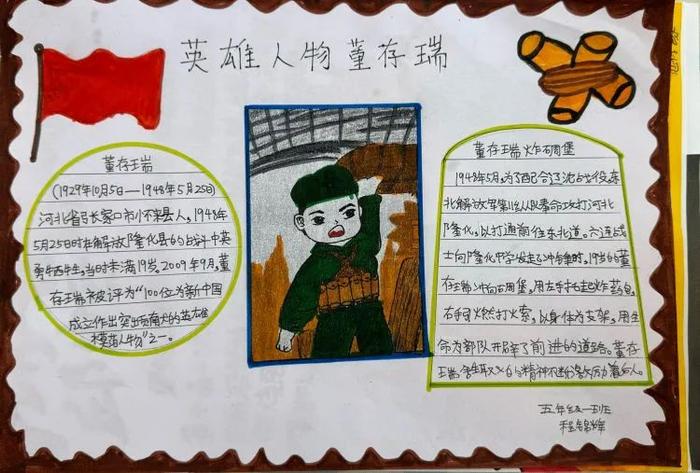 英雄人物董存瑞
董存瑞
(1929年10月5日—1948年5月25日)
河北省张家口市怀来县人,1948年
5月25日时在解放隆化县的战斗中英
勇牺牲,当时未满19岁。2009年9月,董
存瑞被评为“100位为新中国
成立作出突出贡献的英雄
模范人物”之一。
董存瑞炸碉堡
1948年5月,为了配合辽沈战役,东
北解放军第11纵队奉命攻打河北
隆化,以打通前往东北道。六连战
士向隆化中学发起了冲击时,19岁的董
存瑞冲向石碉堡,用左手托起炸药包,
右手燃打火索,以身体为支架,用生
命为部队开辟了前进的道路。董存
瑞舍的精神不断激励着后人。
五年级一班
程锦辉